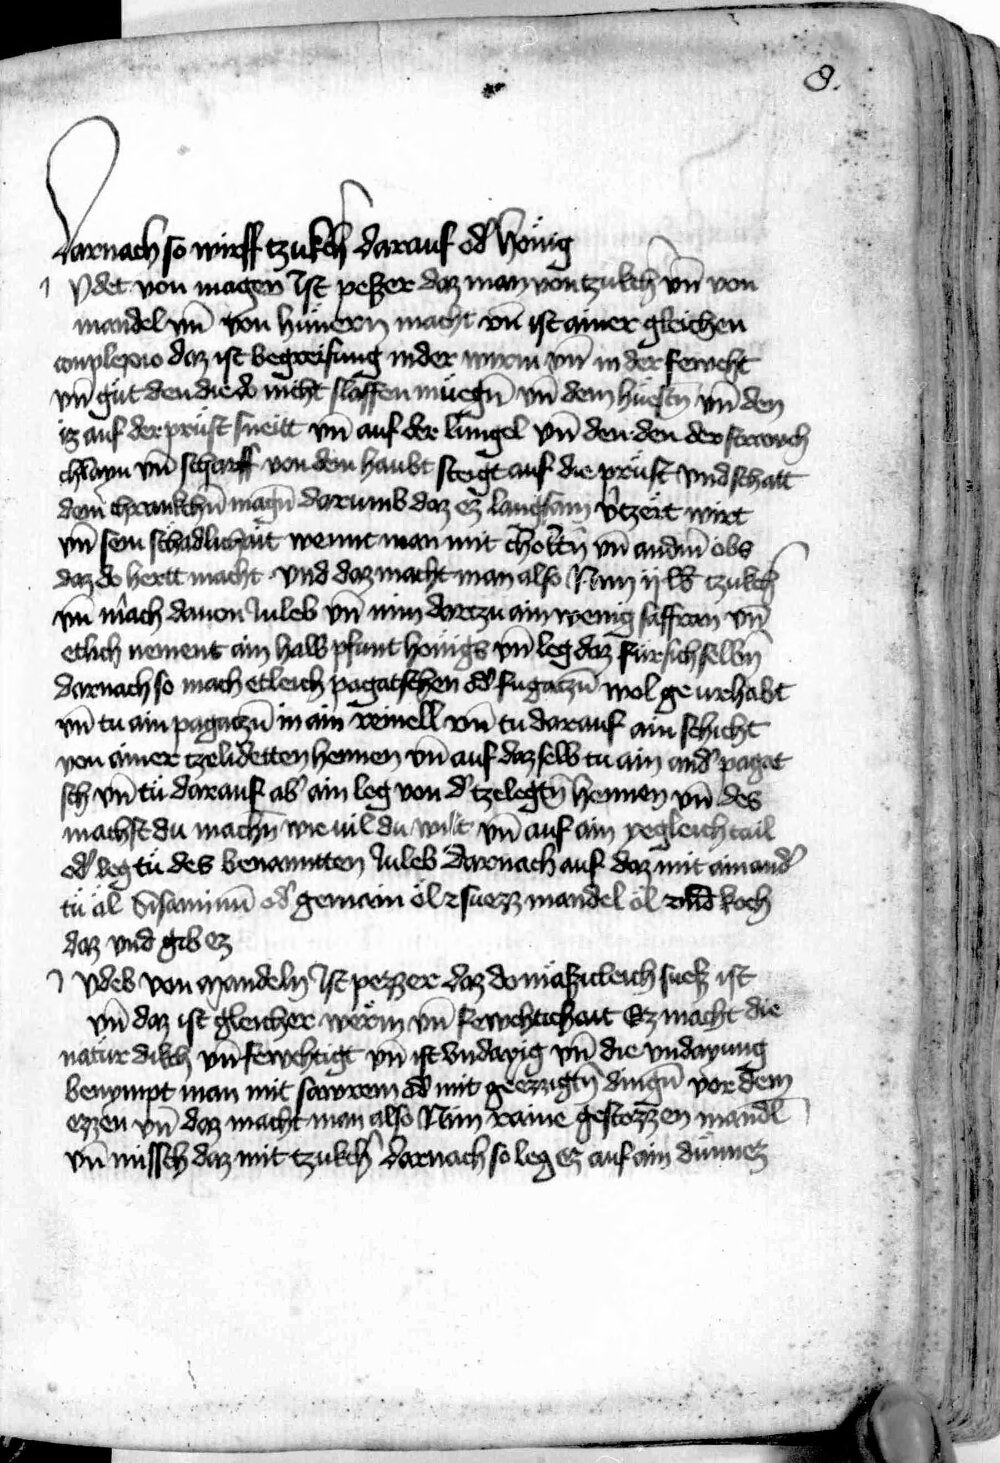 8.
Darnach so wirff tzukch darauf od' honig
Vdet von magen Ist peszer daz man von tzukch vn̄ von
mandel vn̄ von hünern macht vn̄ ist ainer gleichen
complexio daz ist begreifung in der wirm vn̄ in der fewcht
vn̄ güt den die do nicht slaffen müegn̄ vn̄ dem hüestn̄ vn̄ den
iz auf der prüst sneitt vn̄ auf der lungel vn̄ den den der
chlayn vn̄ scharff von dem haubt steigt auf die prüst vnd schatt
dem chrankchn̄ magn̄ darumb daz ez langsam v'tzert wirt
vn̄ sein schadlichait wennt man mit vn̄ andm̄ obs
daz do hertt macht vnd daz macht man also Nim ij lb tzukch
vn̄ mach dauon Juleb vn̄ nim dartzu ain wenig saffran vn̄
etlich nement ain halb pfunt honigs vn̄ leg daz fur sich selbn̄
darnach so mach etleich pagatschen od' fugatzn̄ wol geurhabt
vn̄ tu ain pagatzn̄ in ain reinell vn̄ tu darauf ain schicht
von ainer tzelidetten hennen vn̄ auf daz selb tu ain and' pagat
sch vn̄ tü darauf ab' ain leg von d' tzelegtn̄ hennen vn̄ des
machst du machn̄ wie uil du wilt vn̄ auf ain yegleich tail
od' leg tü des benanntten Juleb darnach auf daz mit ainand'
tü öl Sisaminū od' gemain öl suezz mandel öl vnd koch
daz vnd gib ez
Vdeb von Mandeln Ist pezzer daz do mäszicleich suesz ist
vn̄ daz ist gleicher werm vn̄ fewchtichait Ez macht die
natür dikch vn̄ fewchtigt vn̄ ist vndäyig vn̄ die vndayung
benympt man mit sawrem od' mit geezzigtn̄ dingn̄ vor dem
ezzen vn̄ daz macht man also Nim raine gestozzen mandl
vn̄ missch daz mit tzukch Darnach so leg ez auf ain dünnez